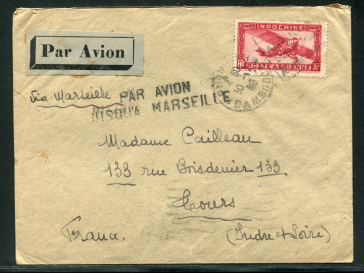 Par Avion
INDOCHINE
via Marseille
PAR AVION
JUSQU'A MARSEILLE
CAMBODGE
Madame Cailleau
133 rue Boisdenier 133
Tours
France. (Indre et Loire)